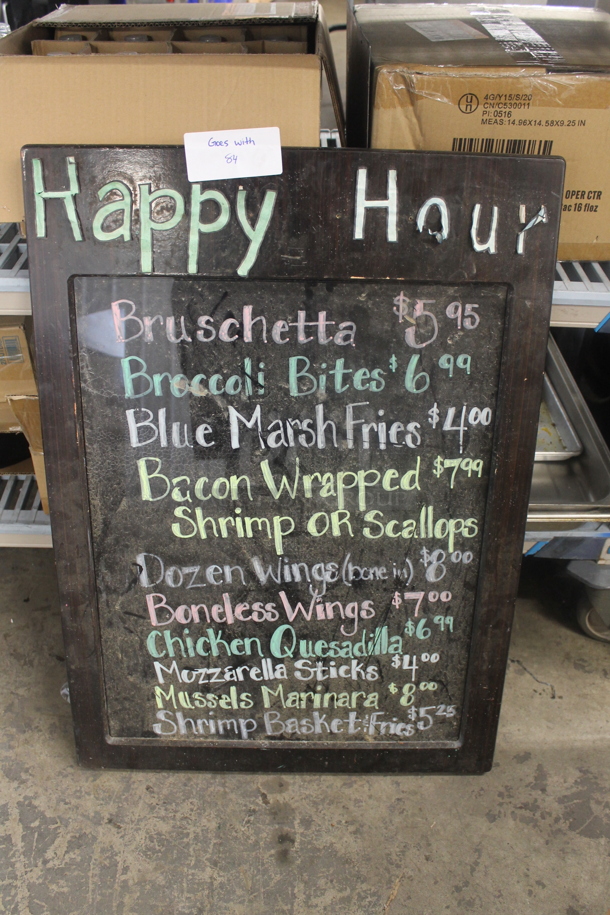 4G/Y15/S/20
CN/C530011
PI: 0516
MEAS: 14.96X14.58X9.25 IN
OPER CTR
ac 16 floz
Goes with
84
Happy Hour
Bruschetta $5.95
Broccoli Bites $6.99
Blue Marsh Fries $4.00
Bacon Wrapped $7.99
Shrimp OR Scallops
Dozen Wings (bone in) $8.00
Boneless Wings $7.00
Chicken Quesadilla $6.99
Mozzarella Sticks $4.00
Mussels Marinara $8.00
Shrimp Basket + Fries $5.25